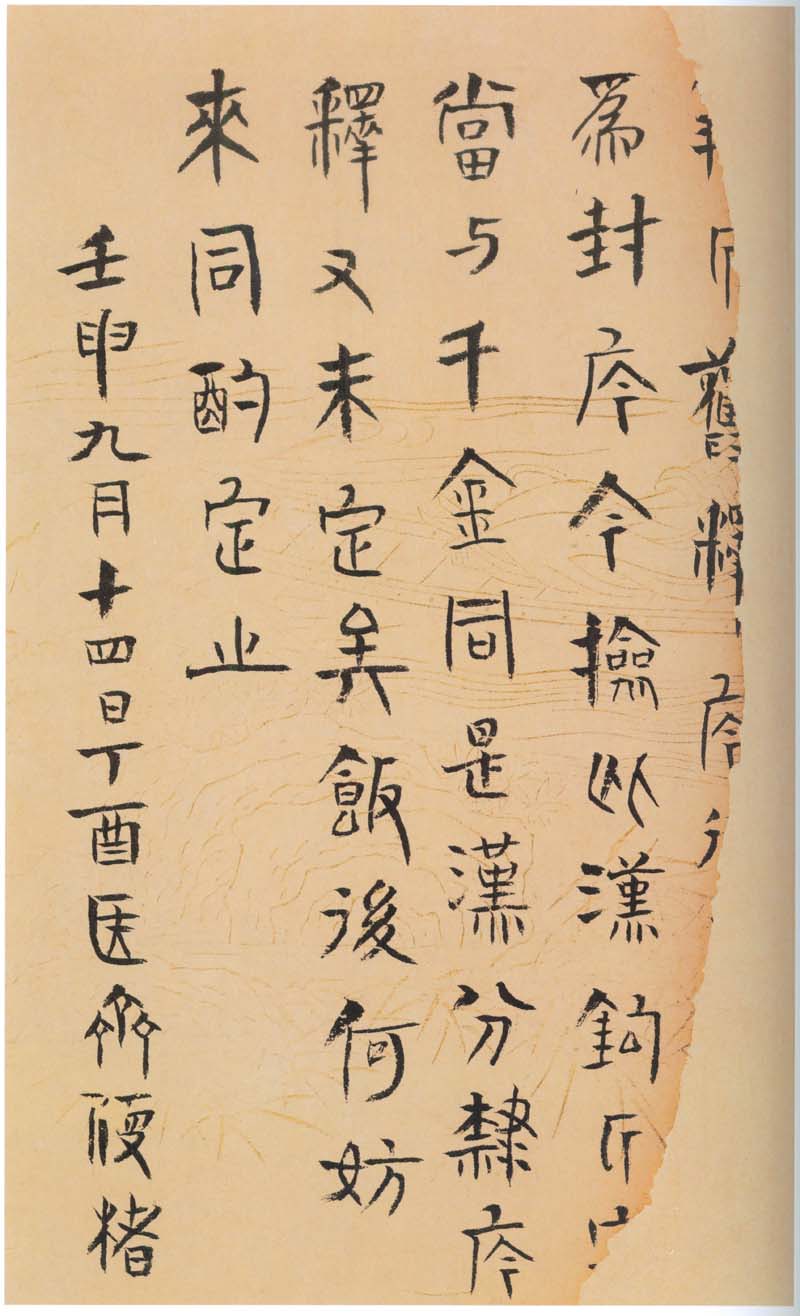 斤舊釋庈
爲封庈今撿此漢鈞斤
當与千金同是漢分隸庈
釋又未定矣飯後何妨
來同酌定止
壬申九月十四日丁酉医齋便楮